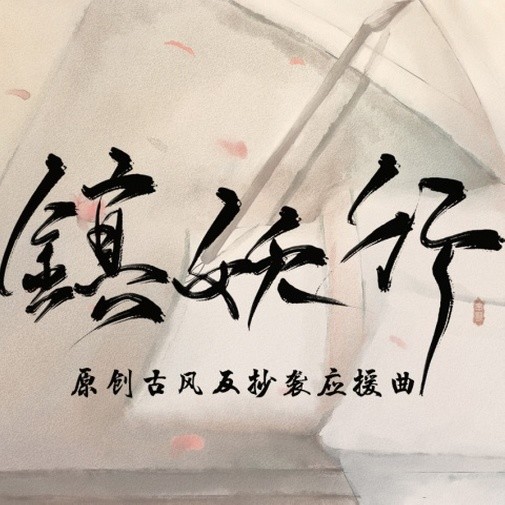 鎮妖行
原创古风反抄袭应援曲